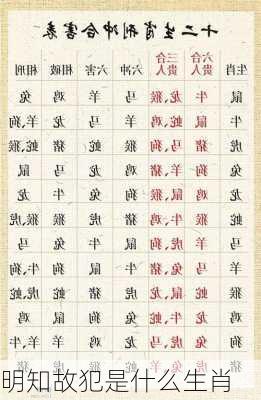 十二生肖刑冲合害表
生肖 六合贵人 三合贵人 六冲 六害 相破 相刑
鼠 牛 龙,猴 马 羊 鸡 兔
牛 鼠 蛇,鸡 羊 马 龙 羊,狗
虎 猪 马,狗 猴 蛇 猪 蛇,猴
兔 狗 羊,猪 鸡 龙 马 鼠
龙 鸡 鼠,猴 狗 兔 牛 龙
蛇 猴 牛,鸡 猪 虎 猴 虎,猴
马 羊 虎,狗 鼠 牛 兔 马
羊 马 兔,猪 牛 鼠 狗 牛,狗
猴 蛇 鼠,龙 虎 猪 蛇 虎,蛇
鸡 龙 牛,蛇 兔 狗 鼠 鸡
狗 兔 虎,马 龙 鸡 羊 牛,羊
明知故犯是什么生肖